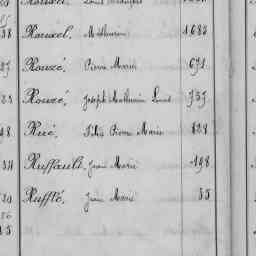 38 Rouxel, Mathurin 1683
27 Rouzé, Pierre Marie 671
23 Rouzé, Joseph Mathurin Louis 737
Rué, Félix Pierre Marie 828
Ruffault, Jean Marie 198
Rufflé, Jean Marie 35